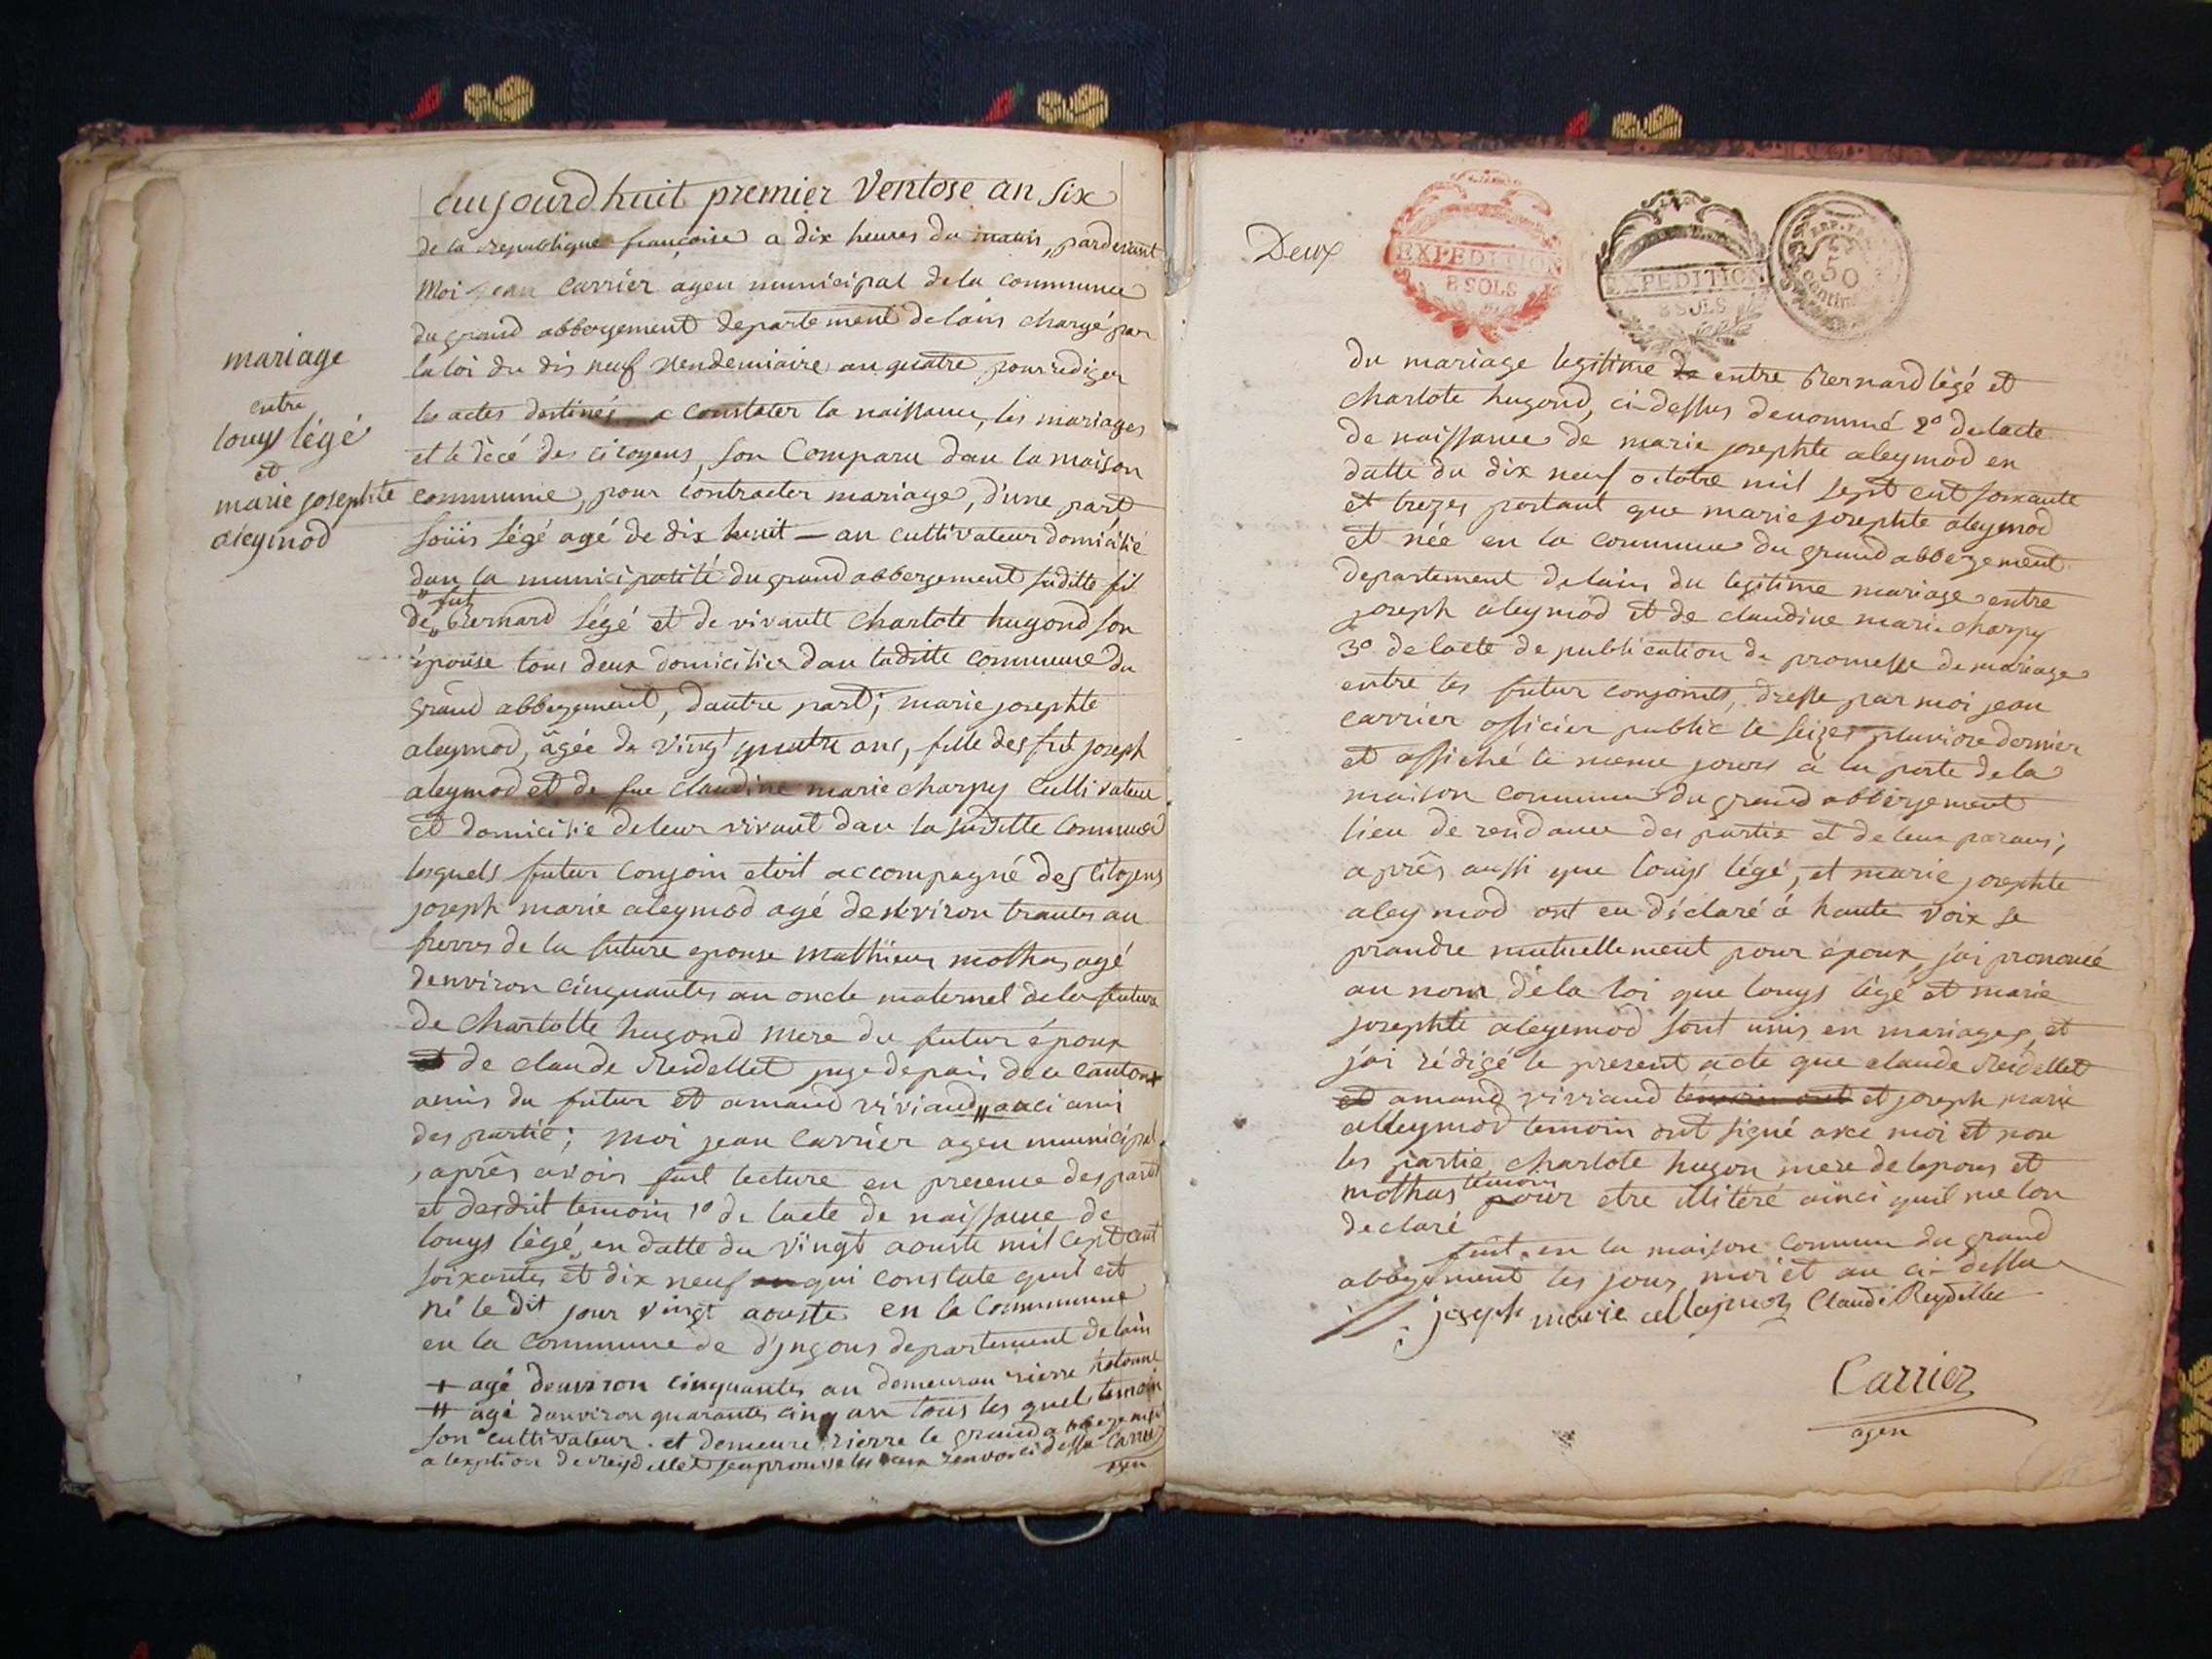 aujourdhuit premier Ventose an six
de la republique françoise a dix heures du matin, pardevant
Moi jean Carrier agen municipal dela commune
du grand abbergement departement delain chargé par
la loi du dis neuf Vendemiaire an quatre, pour rediger
les actes destinés a Constater la naissance, les mariages
et le décé des citoyens, son Comparu dan la maison
mariage
entre
louys légé
et
marie josephte
aleymod
commune, pour contracter mariage, d'une part
loüis légé agé de dix huit — an cultivateur domicilié
dan la municipalité du grand abbergement suditte fil
de "fut" Bernard légé et de vivante Charlote hugond son
épouse tous deux domicilier dan laditte commune du
grand abbergement, dautre part; marie josephte
aleymod, âgée de vingt quatre ans, fille des fut joseph
aleymod et de fue Claudine marie charpy Cultivateur
et domicilié deleur vivant dan la suditte Commune
lesquels futur Conjoin etoit accompagné des Citoyens
joseph marie aleymod agé denviron trantes an
frerres de la future epouse Mathieu mothas agé
denviron cinquantes an oncle maternel dela future
de Charlotte hugond mere du futur époux
et de claude Reidellet juge depais de ce canton +
amis du futur et amand viviand " auci ami
des partie; Moi jean Carrier agen municipal
, après avoir fait lecture en presence des parti
et desdit temoin 1º de lacte de naissance de
louys légé, en datte du vingt aouste mil cept cent
soixantes et dix neuf qui constate quil est
né le dit jour vingt aouste en la Commune
en la Commune de d'jnjous departement delain
+ agé denviron cinquantes an demeuran rierre hotonne
" agé danviron quarantes cinq an tous les quels temoin
son cultivateur. et demeure rierre le grand abbergement
a lexption de reydellet japrouve les deux renvoi ci dessu Carrier
agen
Deux
EXPEDITION
8 SOLS
EXPEDITION
8 SOLS
REP. FRA
50
centim
du mariage legitime de entre Bernard légé et
charlote hugond, ci-dessus denommé 2º de lacte
de naissance de marie josephte aleymod en
datte du dix neuf octobre mil sept cent soixante
et trezes portant que marie josephte aleymod
et née en la commune du grand abbergement
departement delain du legitime mariage entre
joseph aleymod et de claudine marie charpy
3º delacte de publication de promesse de mariage
entre les futur conjoints, dresse par moi jean
carrier officier public le seizes pluviose dernier
et affiché le meme jours à la porte dela
maison commune du grand abbergement
lieu de residance des partie et de leur parans;
après aussi que louys légé, et marie josephte
aleymod ont eu déclaré à haute voix se
prandre mutuellement pour époux, jai prononcé
au nom dela loi que louys légé et marie
josephte aleyemod sont unis en mariages, et
j'ai rédigé le present acte que claude Reidellet
et amand viviand temoin ont et joseph marie
alleymod temoin ont signé avec moi et non
les partie, charlote hugon mere de lepous et
mothas temoin pour etre illitéré ainci quil me lon
declaré
fait en la maison commun du grand
abbergement les jour, moi et an ci-dessu
joseph marie allejmoz Claude Reydellet
Carrier
agen